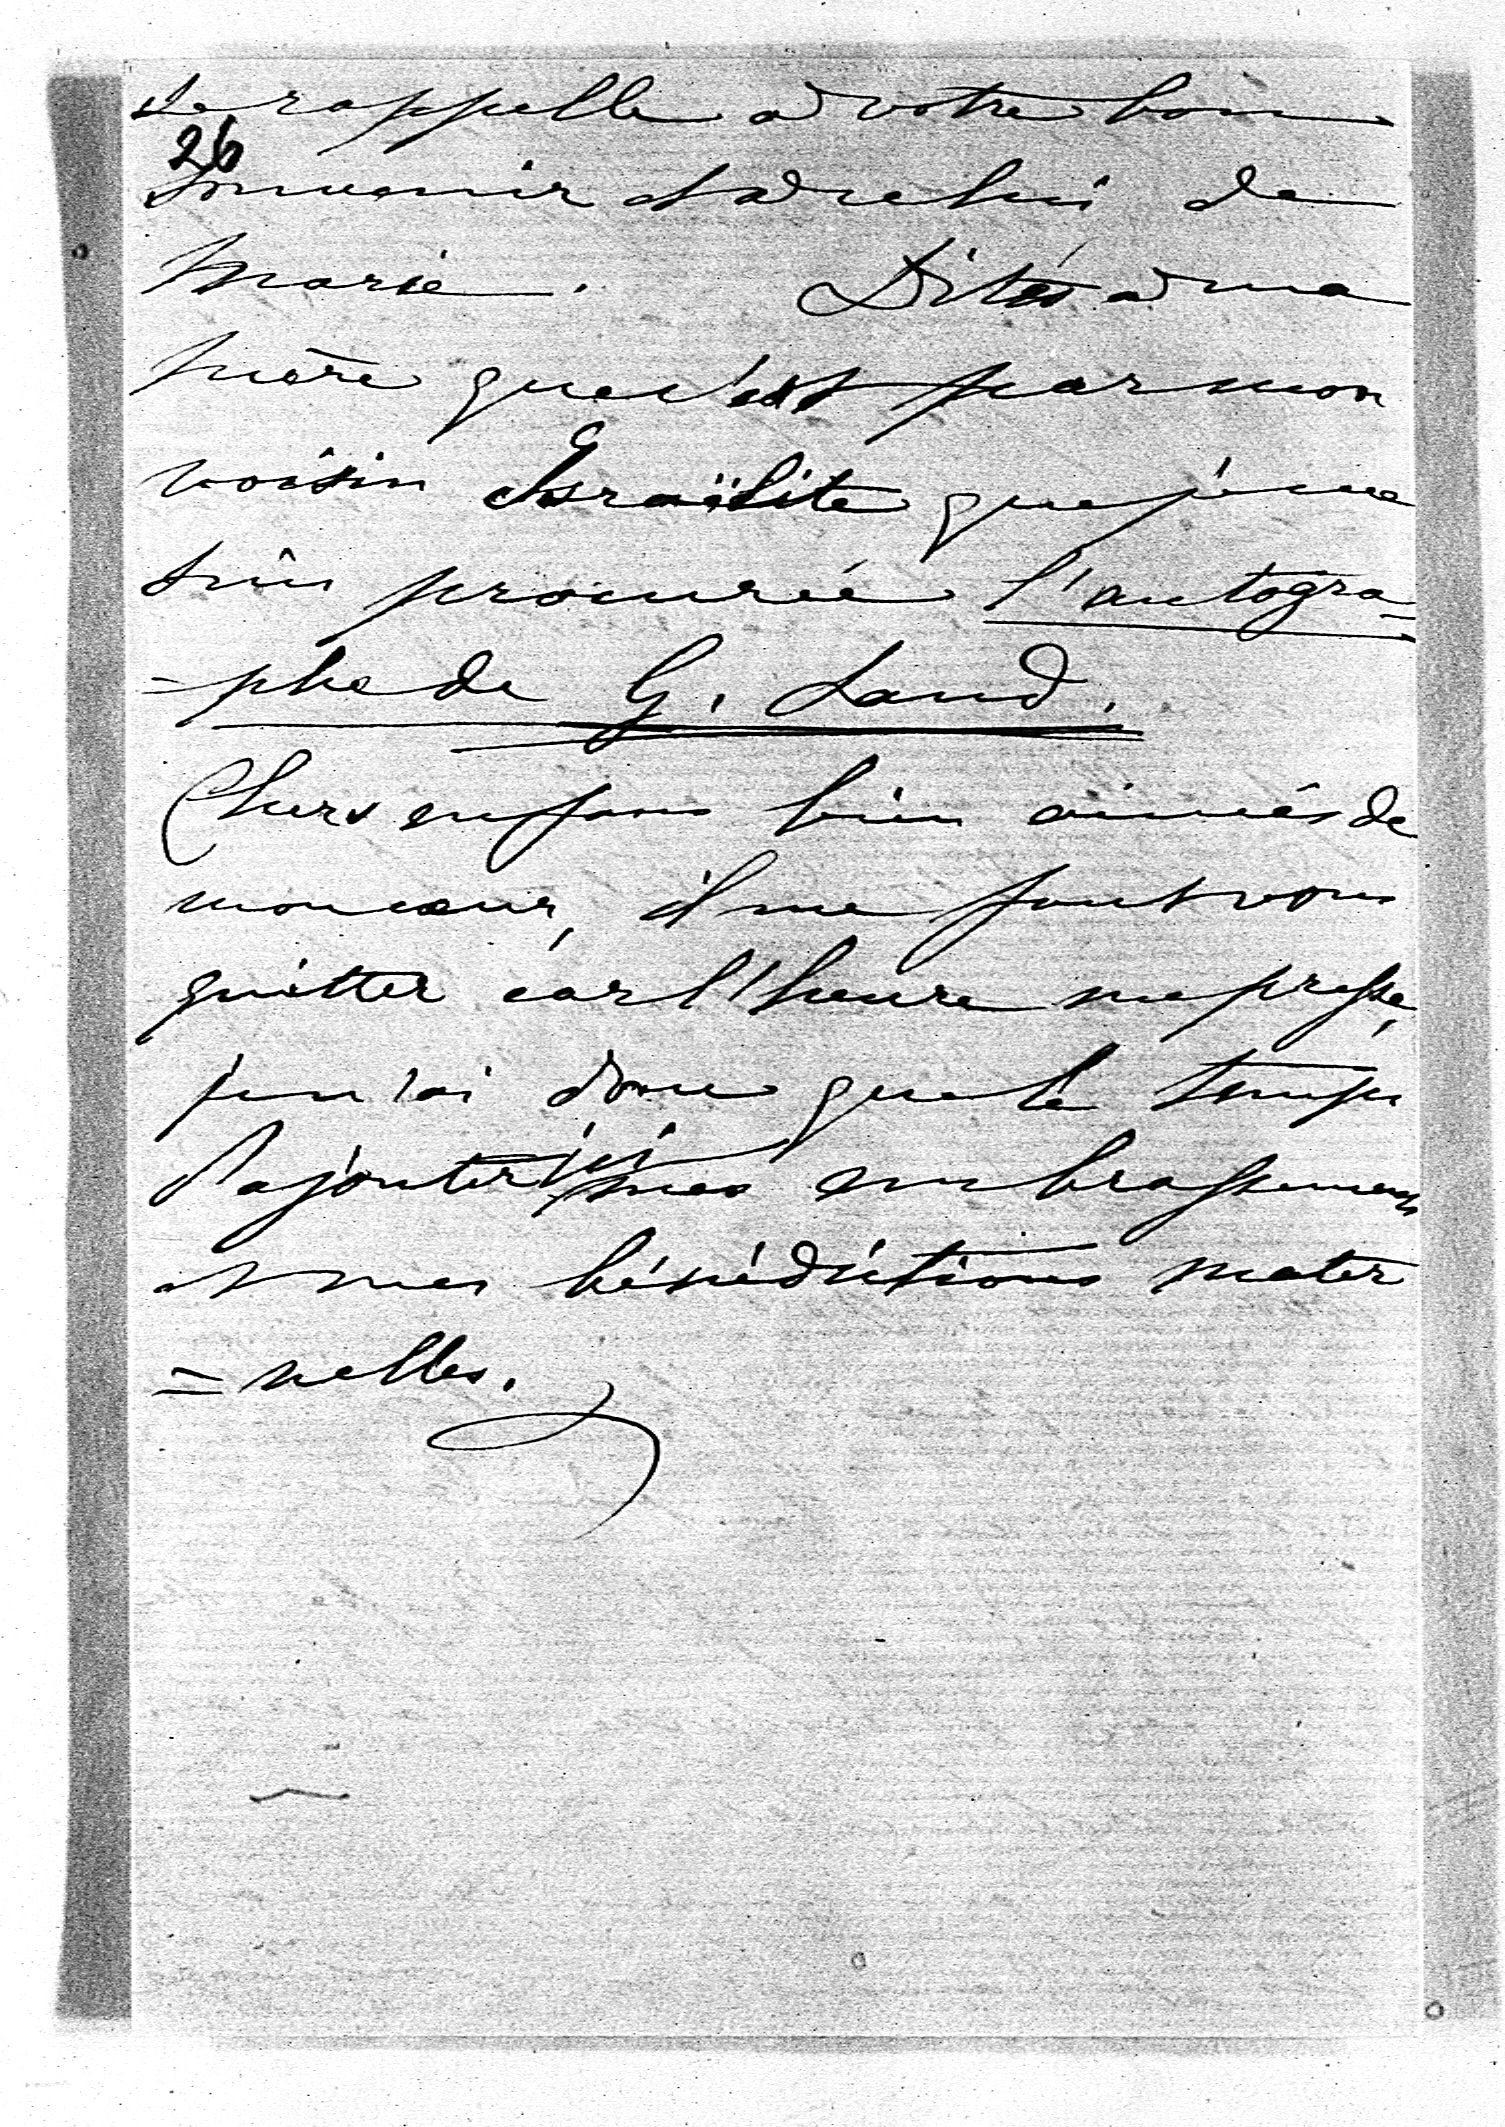 se rappelle à votre bon
26
souvenir et à celui de
Marie. Dites à ma
mère que c'est par mon
voisin Israëlite que je me
suis procurée l'autogra-
-phe de G. Sand.
Chers enfans bien aimés de
mon cœur, il me faut vous
quitter car l'heure me presse,
je n'ai donc que le temps
d'ajouter ici mes embrassemens
et mes bénédictions mater
=nelles.